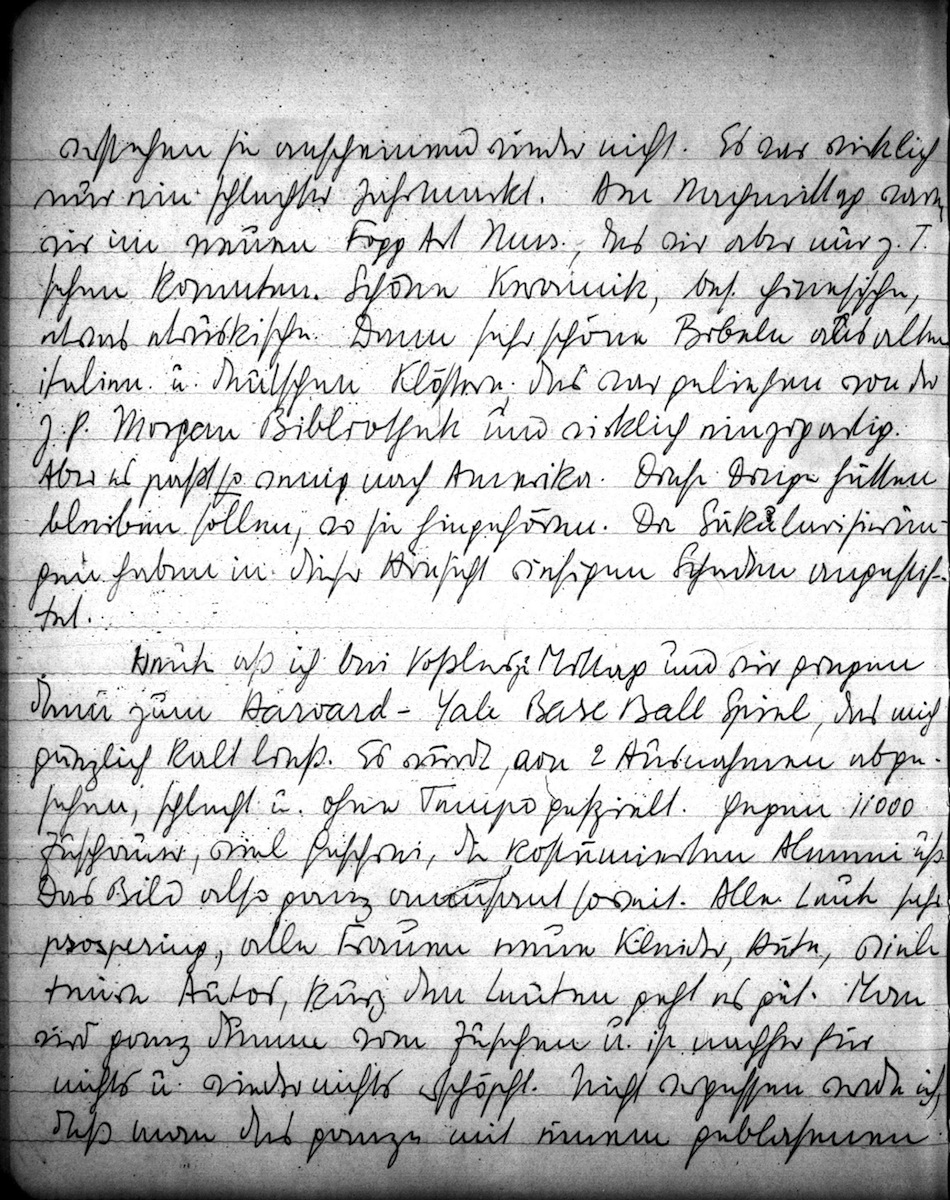 verstehen sie anscheinend wieder nicht. Es war wirklich
nur ein schlechter Jahrmarkt. Am Nachmittag waren
wir im neuen Fogg Art Mus., das wir aber nur z. T.
sehen konnten. Schöne Keramik, bes. chinesische,
etwas etruskische. Dann sehr schöne Bibeln aus alten
italien. u. deutschen Klöstern; das war geliehen von der
J. P. Morgan Bibliothek und wirklich einzigartig.
Aber es passt so wenig nach Amerika. Diese Dinge hätten
bleiben sollen, wo sie hingehören. Die Säkularisierun-
gen haben in dieser Hinsicht riesigen Schaden angestif-
tet.
Heute aß ich bei Mittag und wir gingen
dann zum Harvard - Yale Base Ball Spiel, das mich
gänzlich kalt ließ. Es wurde, von 2 Ausnahmen abge-
sehen, schlecht u. ohne Tempo gespielt. Gegen 11000
Zuschauer, viel Geschrei, die kostümierten Alumni usw.
Das Bild also ganz amüsant soweit. Alle Leute sehr
prospering, alle Frauen neue Kleider, Hüte, viele
teure Autos, kurz den Leuten geht es gut. Man
wird ganz dumm vom Zusehen u. ist nachher für
nichts u. wieder nichts erschöpft. Nicht vergessen werde ich,
daß man das ganze mit einem geblasenen